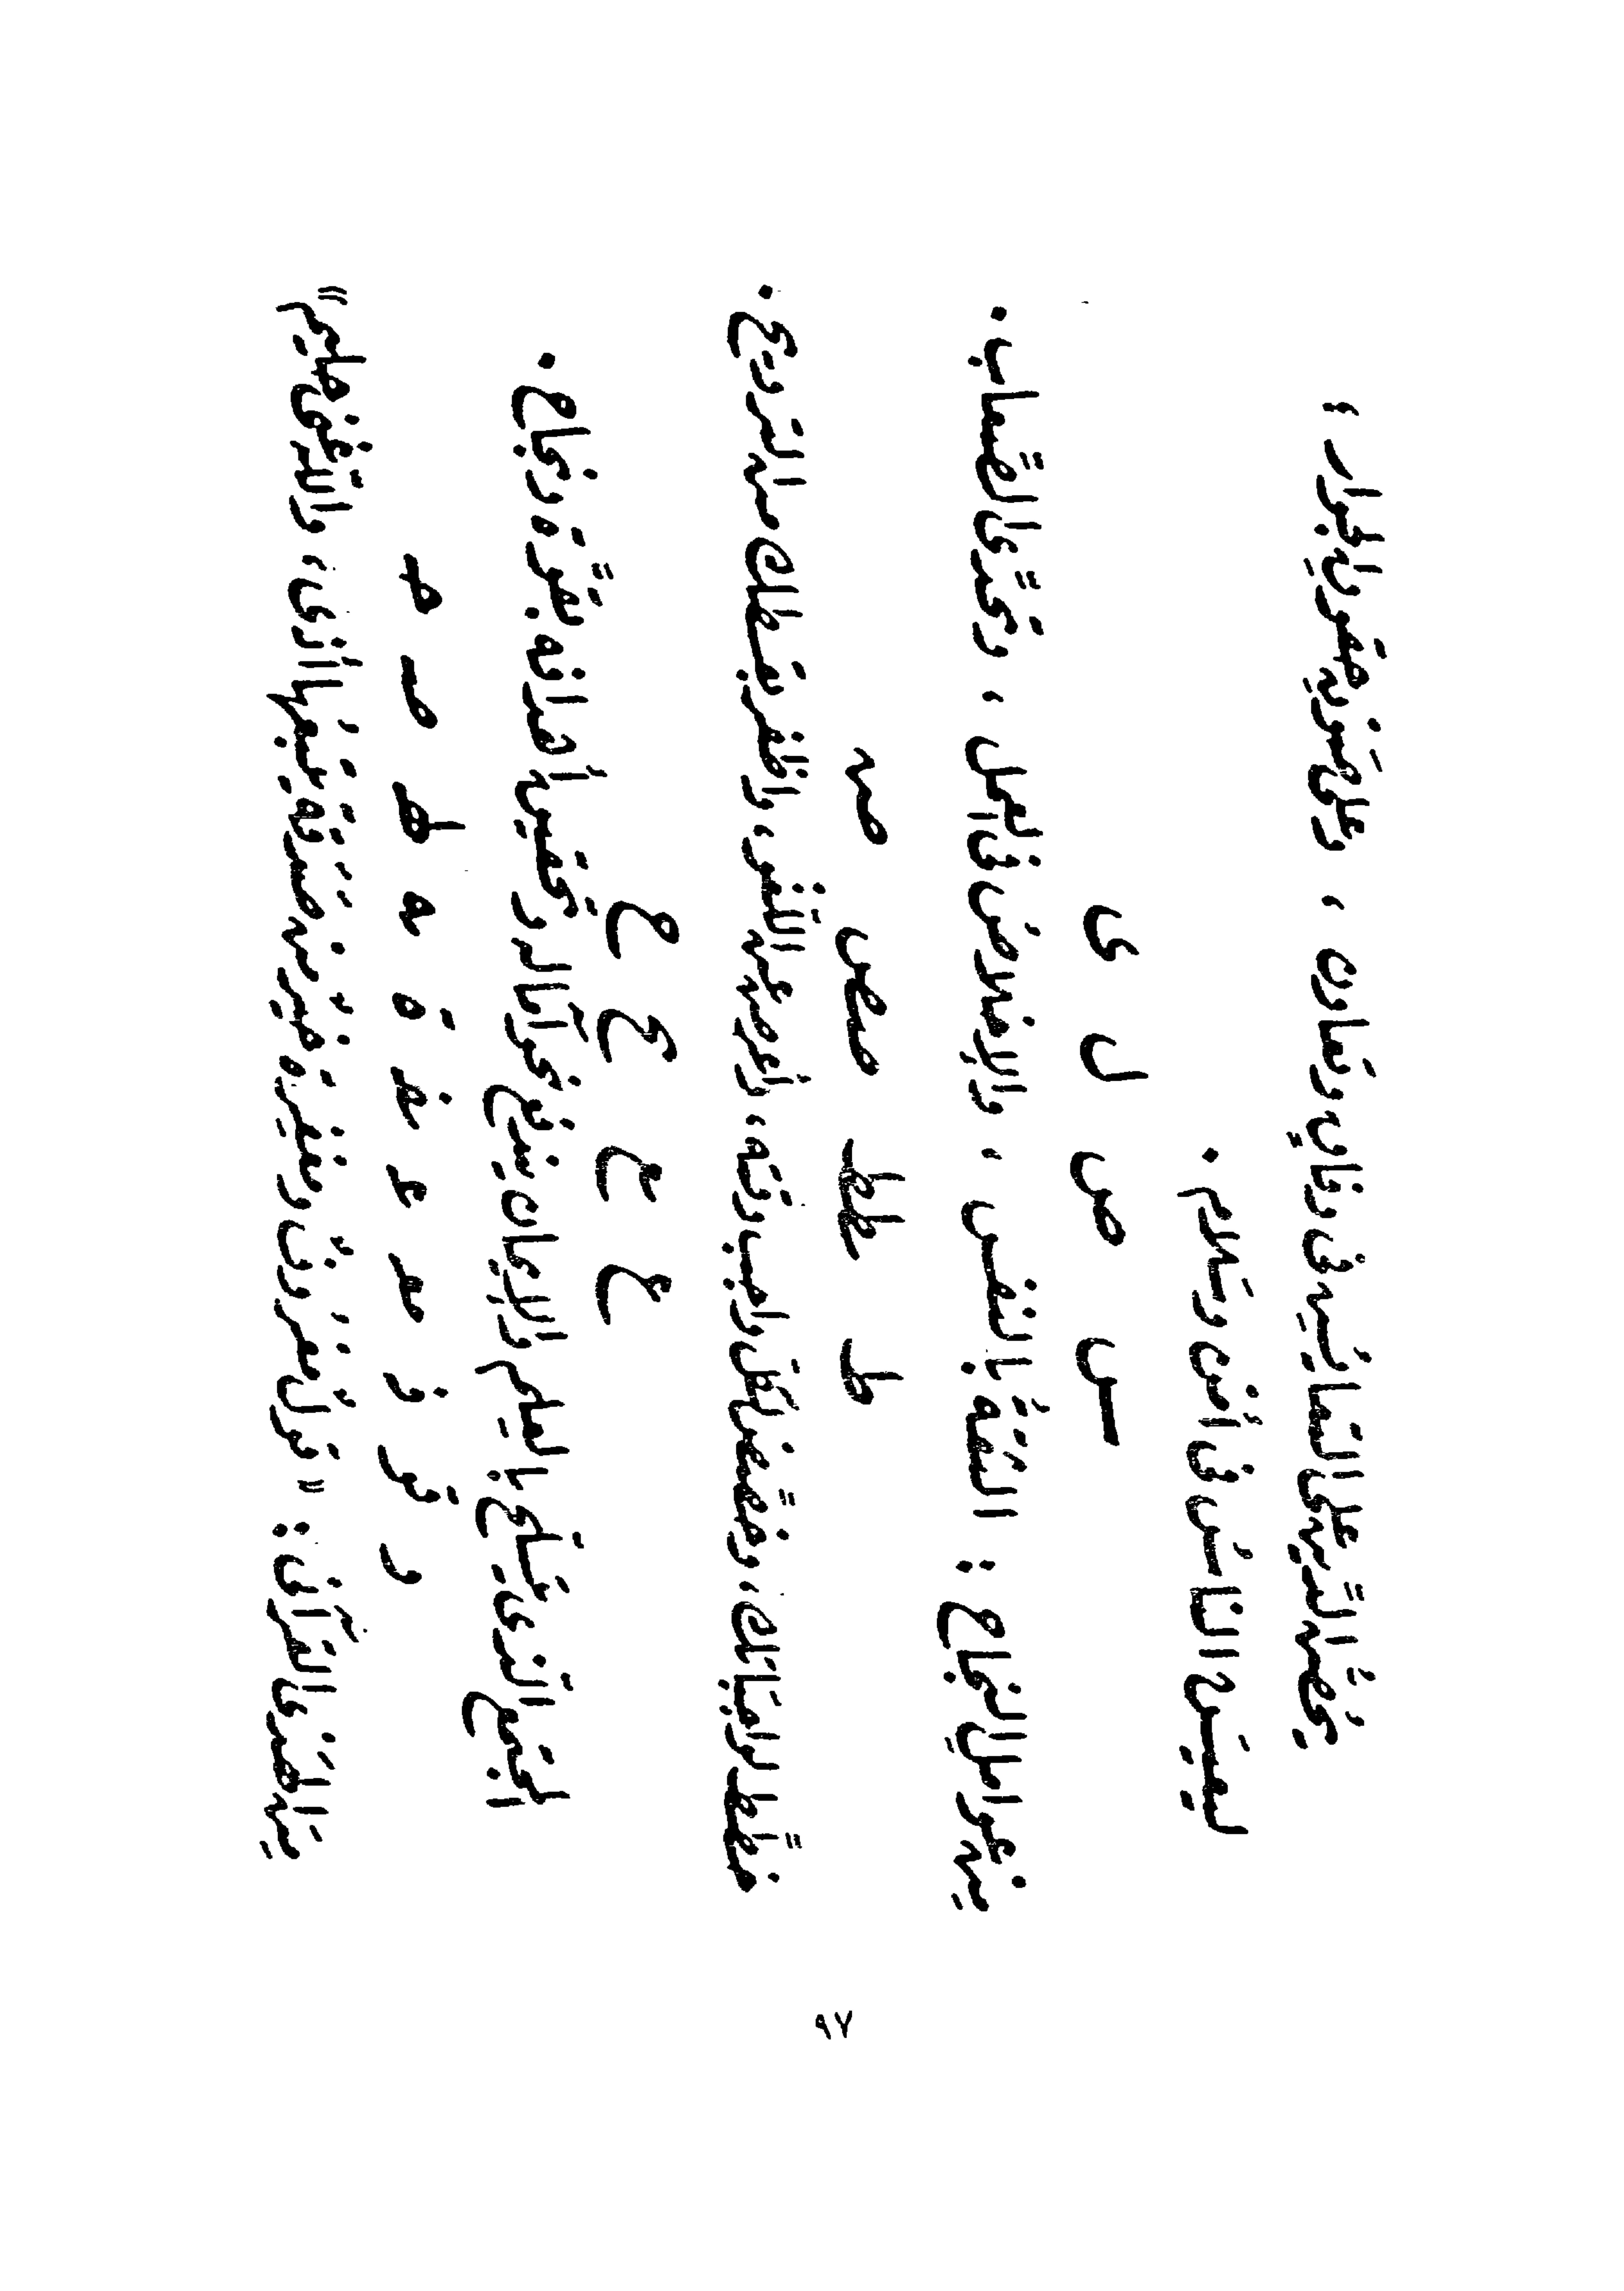 يَحُضُّ الدِّين على التعايُش فى وئامٍ وتَعاون ، وعلى صَون حقوق الجوار ؛
ليعيشَ الناسُ فى أمنٍ وسَلام .
س ص ل ى
من عوامل النجاح : الثقةُ بالنفس ، والإخلاص فى العمل ، وتحدِّى الصِّعاب .
ط طط صص
خطِّط لواجباتك ، وخصِّص لكل واجب وقته ، وأعرض عن اللغو ، واظفر بقسطك من الترويح .
المجتمع الذى يتسلَّح بالعلم والإيمان يندفع نحو آماله وتحقيق أهدافه بقوَّة ونجاح .
و قو
من الهَدْى القرآنى : « قولٌ معْروفٌ ومغفِرةٌ خيْرٌ من صدَقةٍ يتبعُها أذًى ، واللهُ غنىٌّ حليم »
٩٧